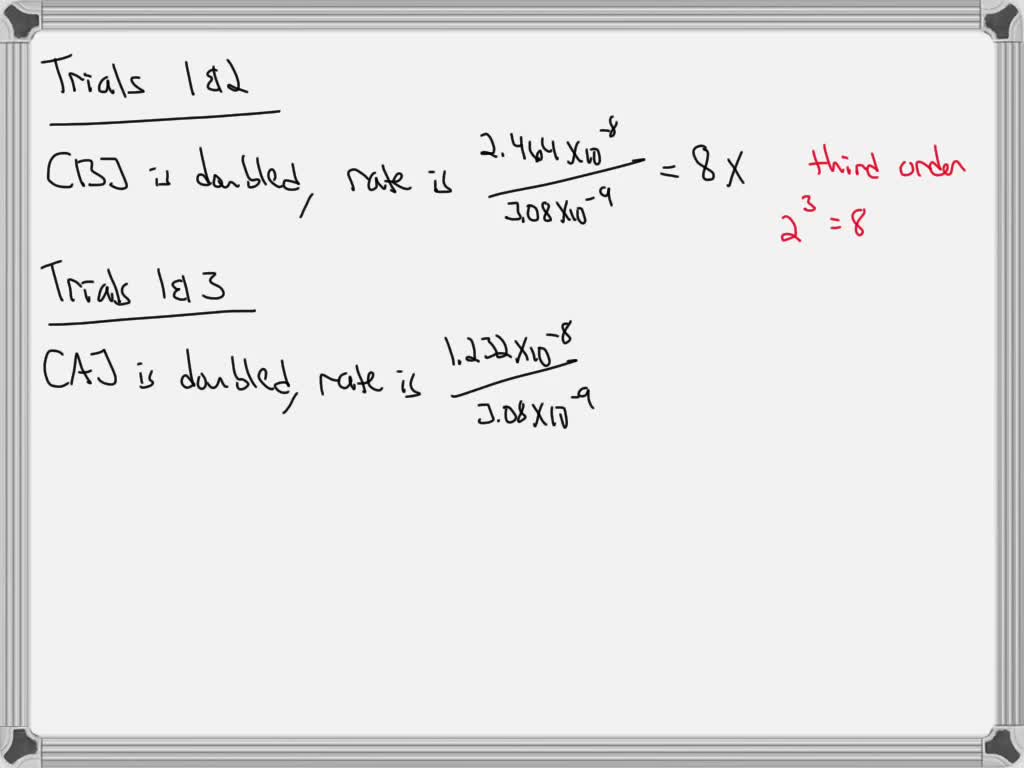 Trials 1&2
[B] is doubled, rate is 2.464×10^-8 / 3.08×10^-9 = 8× third order
2^3 = 8
Trials 1&3
[A] is doubled, rate is 1.232×10^-8 / 3.08×10^-9